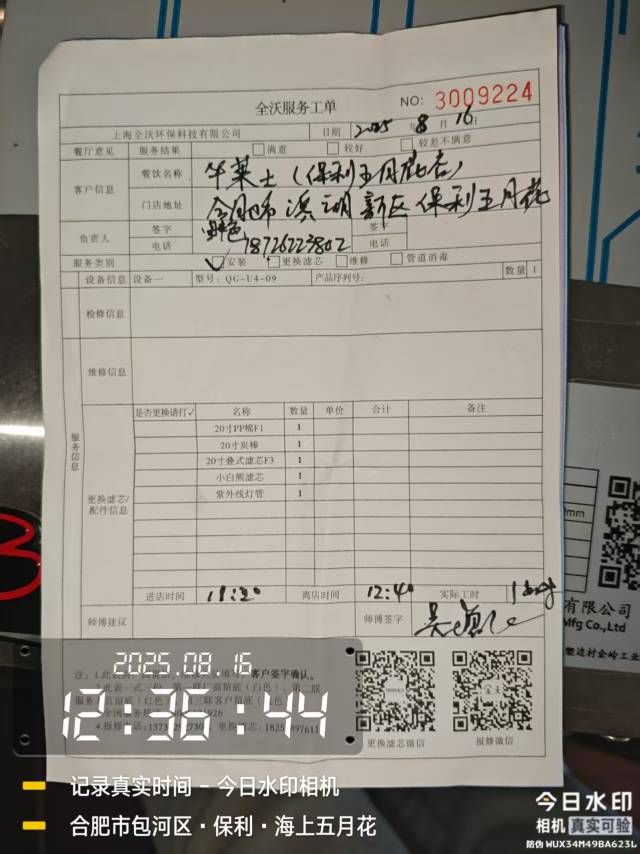 全沃服务工单
NO: 3009224
上海全沃环保科技有限公司 日期 2025 年 8 月 16 日
餐厅意见 服务结果 满意 较好 较差不满意
客户信息 餐饮名称 华莱士(保利五月花店)
门店地址 合肥市滨湖新区保利五月花
负责人 签字 签字
电话 18726223802 电话
服务类别 ✓ 安装 更换滤芯 维修 管道消毒
设备信息 设备一 型号: QG-U4-09 产品序列号: 数量 1
检修信息
服务信息
维修信息
更换滤芯/配件信息
是否更换请打✓ 名称 数量 单价 合计 备注
20寸PP棉F1 1
20寸炭棒 1
20寸叠式滤芯F3 1
小白熊滤芯 1
紫外线灯管 1
进店时间 11:20 离店时间 12:40 实际工时
师傅建议 师傅签字
客户签字确认。
更换滤芯微信 报修微信
有限公司
Mfg Co.,Ltd
2025.08.16
12:38:44
记录真实时间 - 今日水印相机
合肥市包河区·保利·海上五月花
今日水印
相机 真实可验
防伪 WUX34M49BA623L